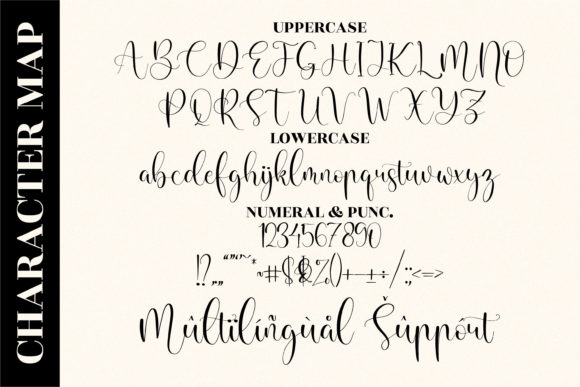 CHARACTER MAP
UPPERCASE
ABCDEFGHIJKLMNO
PQRSTUVWXYZ
LOWERCASE
abcdefghijklmnopqrstuvwxyz
NUMERAL & PUNC.
1234567890
!?,,„“”‘’~*~#$&%()+-±÷/:;,<=>
Mûltïlíñgùål Šûppórt